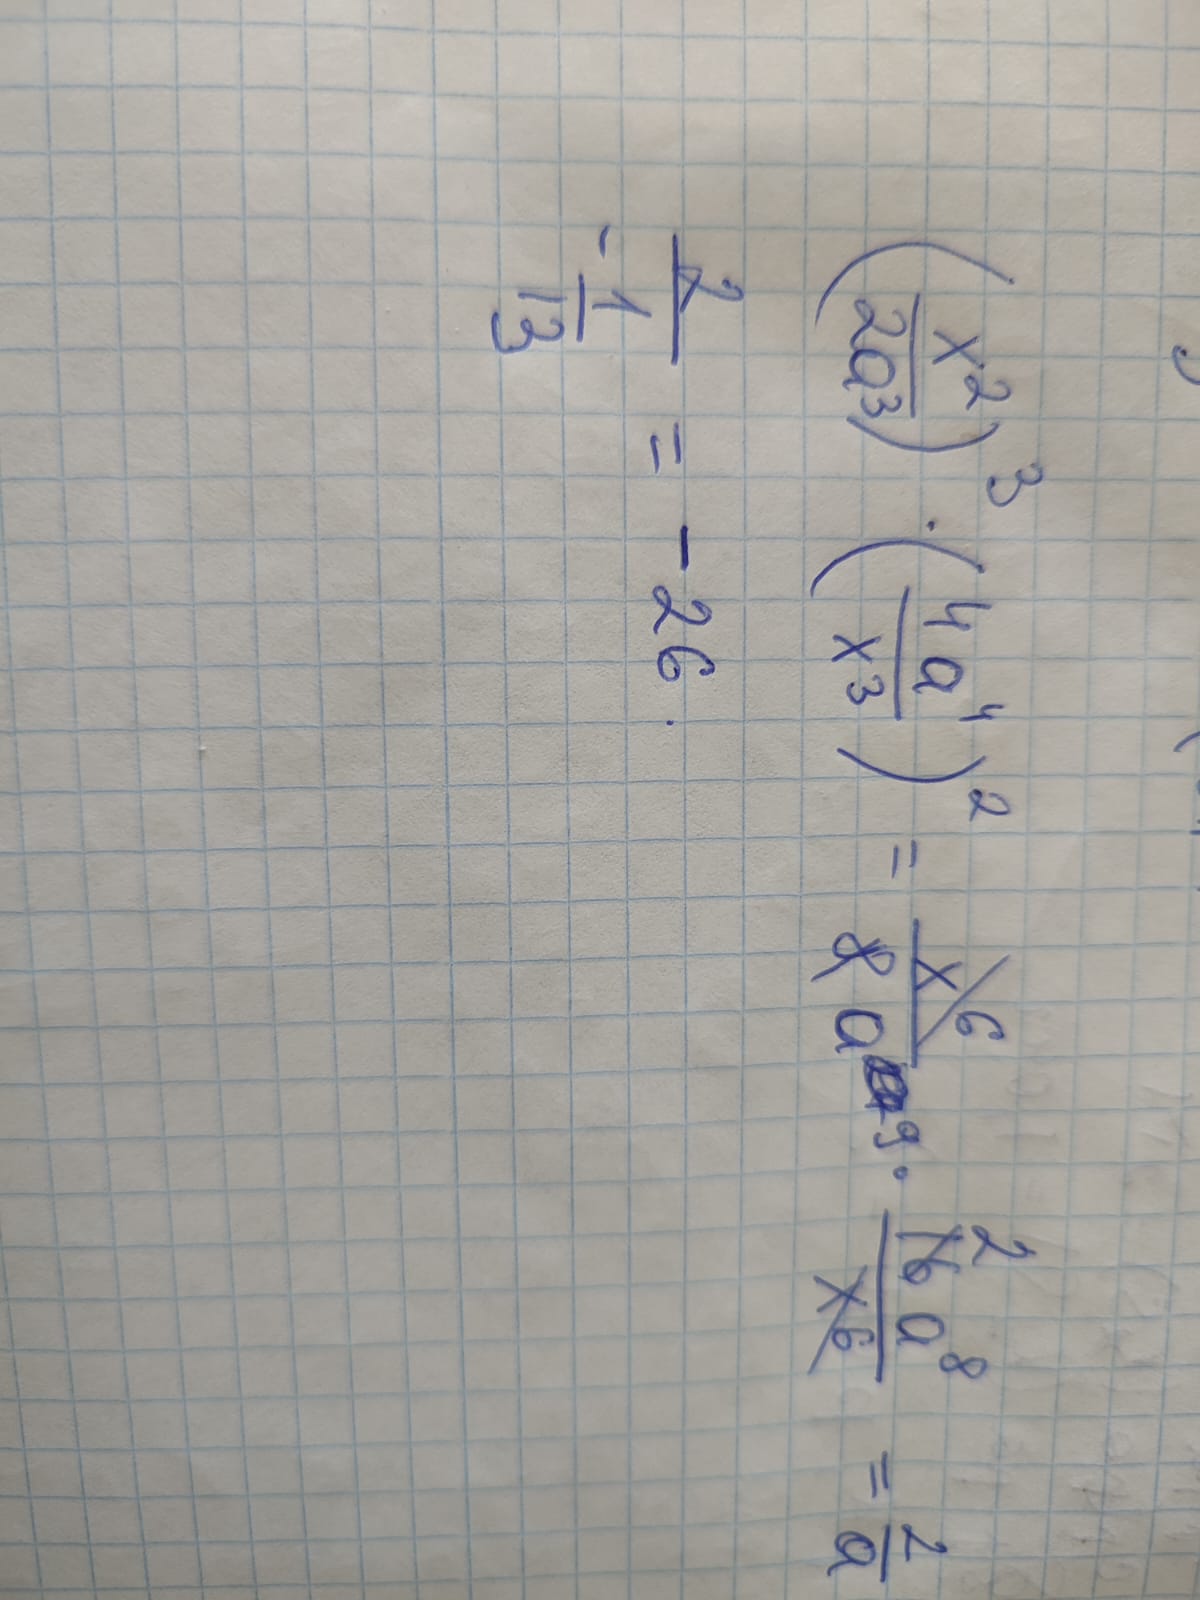 (x²/2a³)³ · (4a⁴/x³)² = x⁶/8a⁹ · 2 16a⁸/x⁶ = 2/a
2/-1/13 = -26.